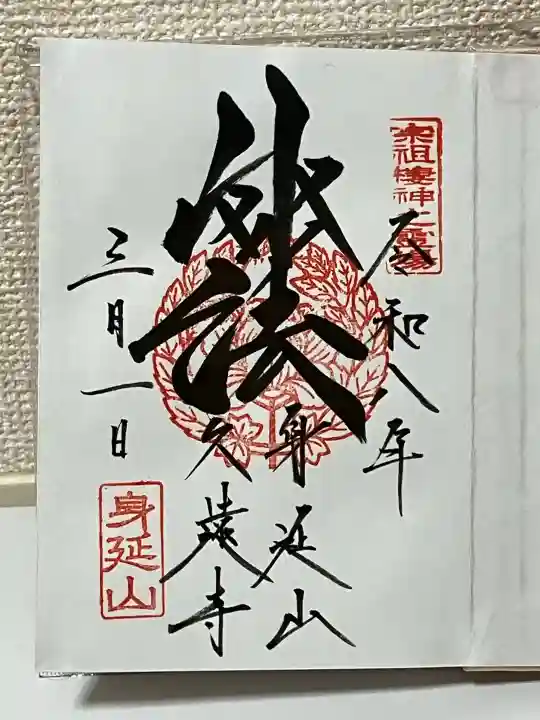 宗祖棲神之霊場
令和八年
妙法
身延山
久遠寺
三月一日
身延山